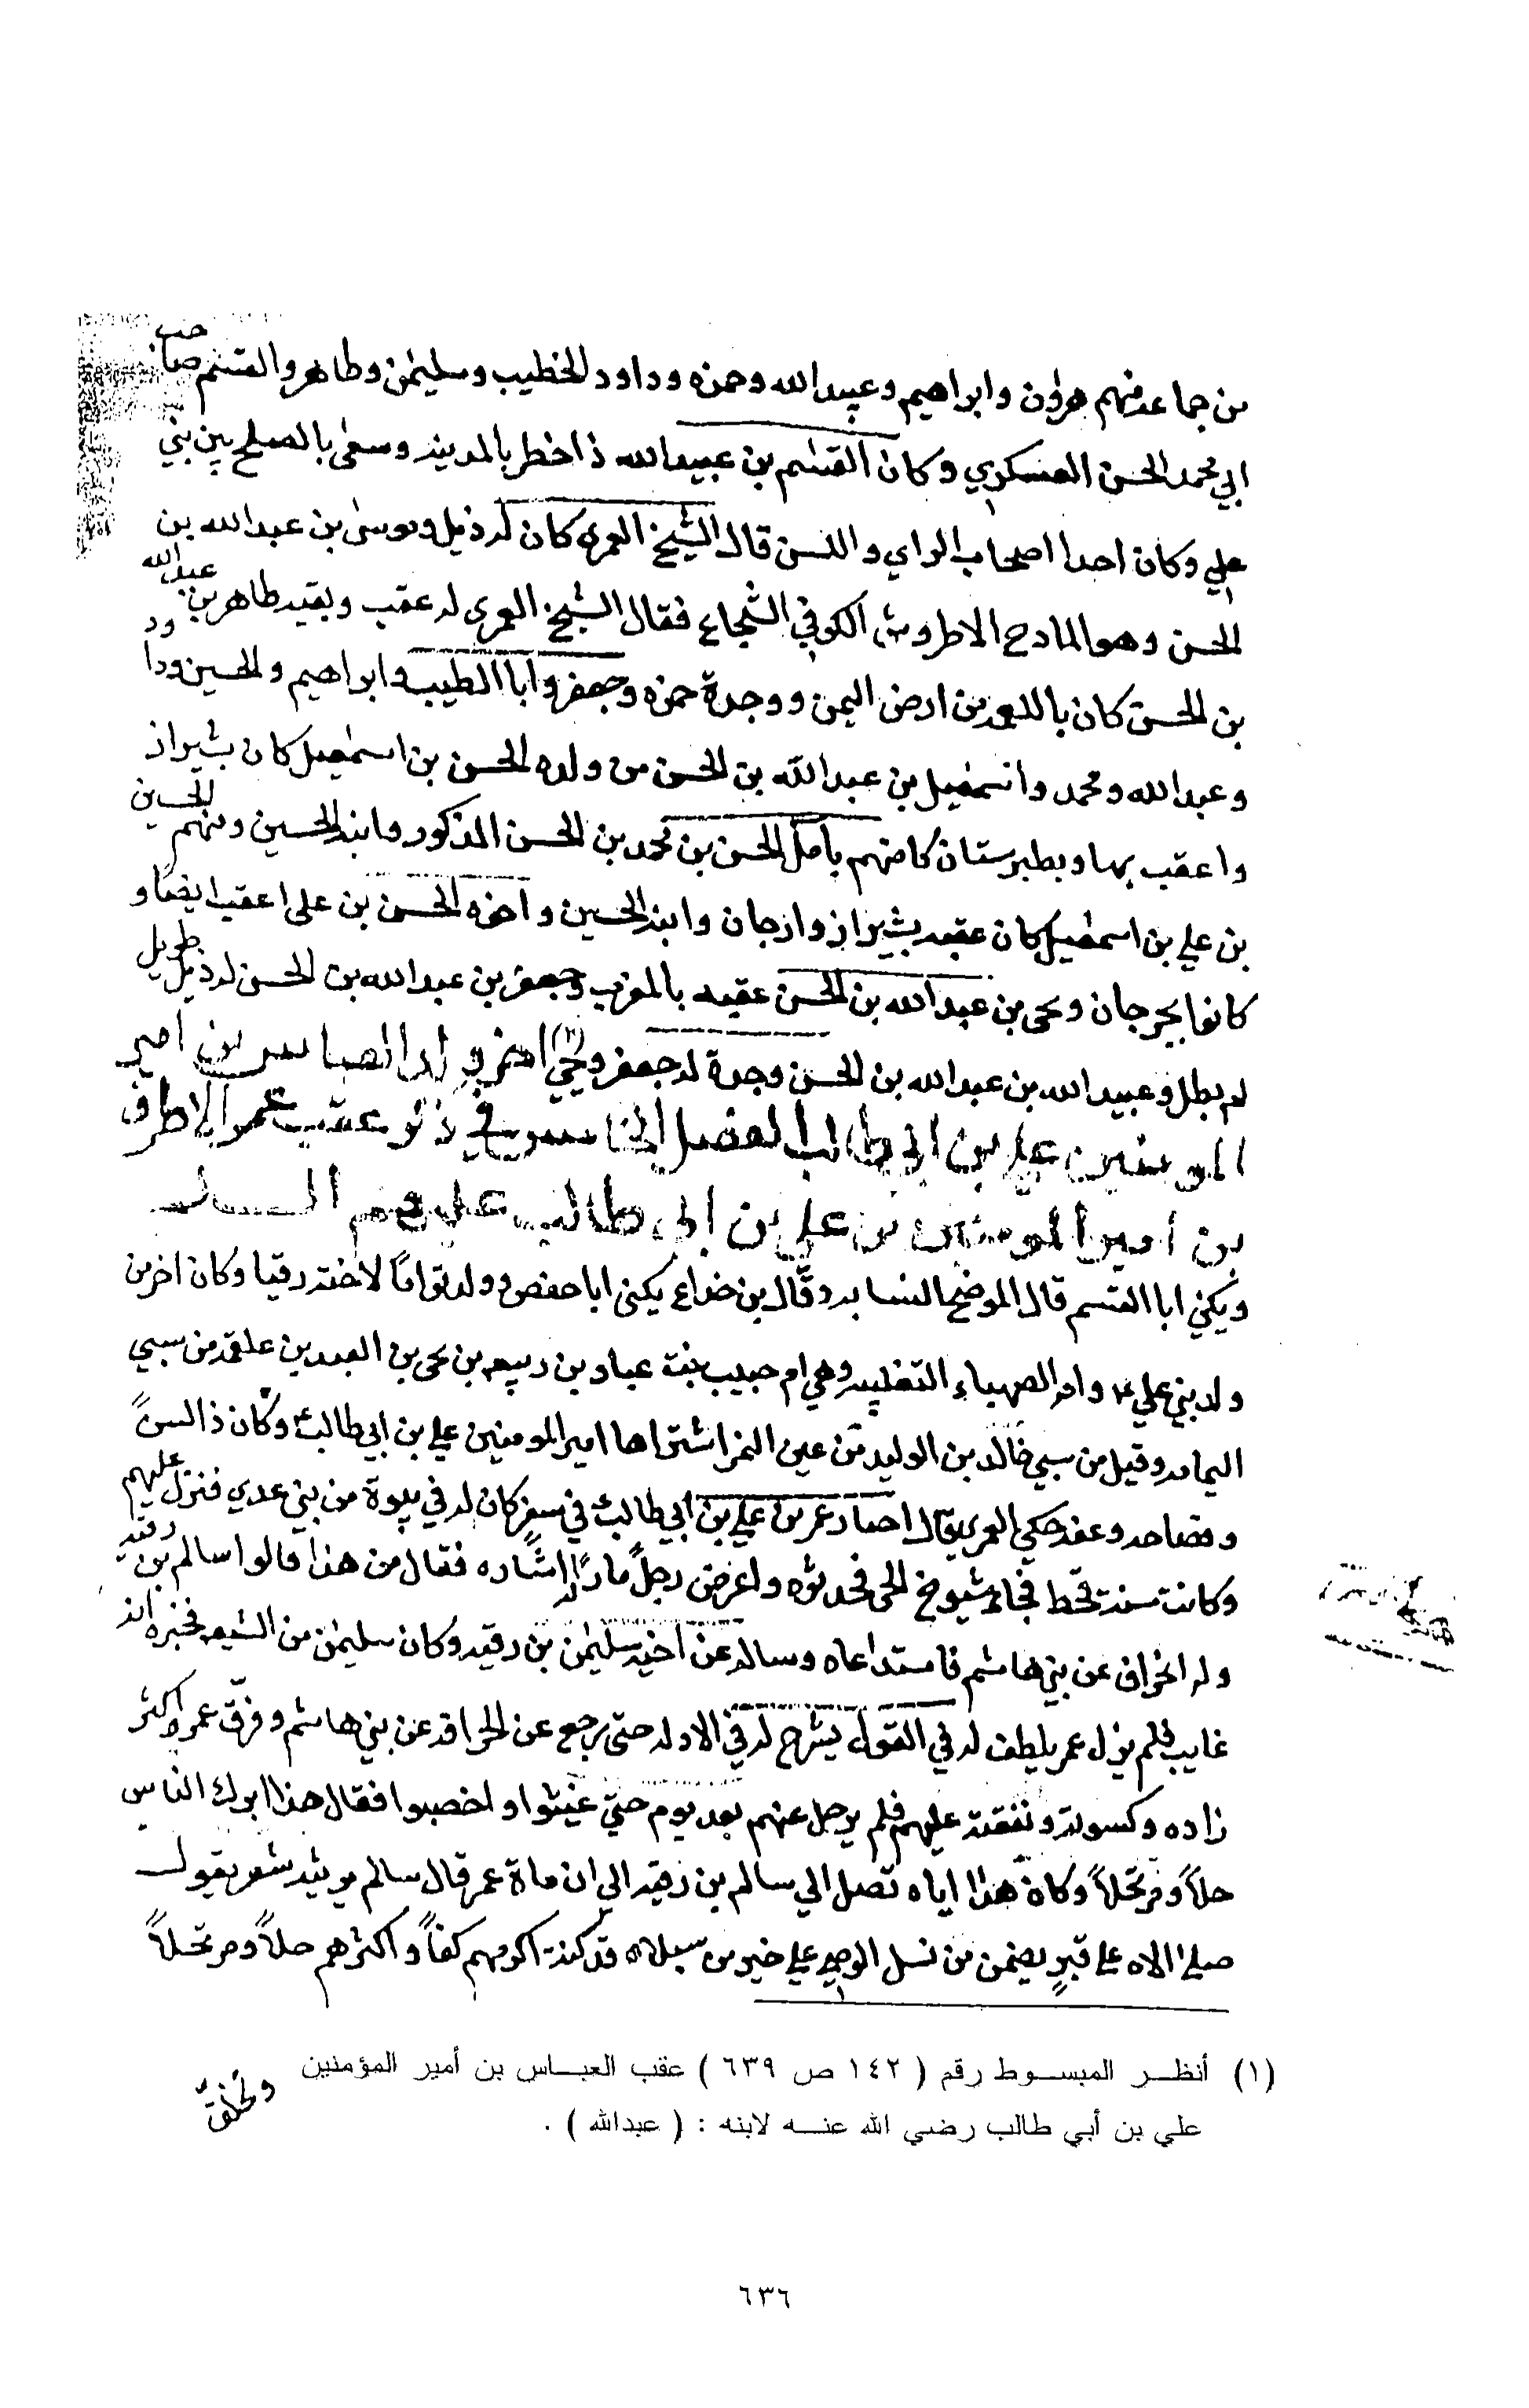 من جماعه منهم هرون وابراهيم وعبيدالله وحمزه وداود الخطيب وسليمن وطاهر والقسم صاحب
ابي محمد الحسن العسكري وكان القسم بن عبيدالله ذا خطر بالمدينه وسعى بالصلح بين بني
علي وكان احدا اصحاب الراي واللسن قال الشيخ العمري كان له ذيل وموسى بن عبدالله بن
الحسن وهو المادح الاطروش الكوفي الشجاع فقال الشيخ العمري له عقب وبقيه طاهر بن عبدالله
بن الحسن كان من ارض اليمن ووجدة حمزه وجعفر وابا الطيب وابراهيم والحسين وداود
وعبدالله ومحمد واسمعيل بن عبدالله بن الحسن من ولده الحسن بن اسمعيل كان بشيراز
واعقب بها وبطبرستان كا منهم بامل الحسن بن محمد بن الحسن المذكور وابنه الحسين ومنهم الحسين
بن علي بن اسمعيل كان عقبه بشيراز وارجان وابنه الحسين واخوه الحسن بن علي اعقب ايضا و
كانوا بجرجان ويحى بن عبدالله بن الحسن عقبه بالمغرب وجعفر بن عبدالله بن الحسن له ذيل طويل
لم يطل وعبيدالله بن عبدالله بن الحسن وجدة له جعفر ويحيى (١) اخر ولد العباس بن امير
المومنين علي بن ابي طالب الفصل الخامس في ذكر عقب عمر الاطرف
بن امير المومنين علي بن ابي طالب عليهم السلام
ويكنى ابا القسم قال الموضح النسابه وقال بن خداع يكنى ابا حفص وولد تواما لاخته رقيا وكان اخر من
ولد بني علي وامه الصهباء التغلبيه وهي ام حبيب بنت عباد بن ربيعه بن يحى بن العبد بن علقمه من سبي
اليمامه وقيل من سبي خالد بن الوليد من عين التمر اشتراها امير المومنين علي بن ابي طالب وكان ذا لسن
وفصاحه وعفه حكي العمري قال اجتاز عمر بن علي بن ابي طالب في سفر كان له في بيوة من بني عدي فنزل عليهم
وكانت سنة قحط فجاءه شيوخ الحي فحدثوه واعرض رجل مارا له شاره فقال من هذا قالوا سالم بن رقيه
وله انحراف عن بني هاشم فاستدعاه وساله عن اخيه سليمن بن رقيه وكان سليمن من الشيعه فخبره انه
غايب فلم يزل عمر يلطف له في القول يشرح له في الادله حتى رجع عن انحرافه عن بني هاشم وفرق عمر اكثر
زاده وكسوته ونفقته عليهم فلم يرحل عنهم بعد يوم حتى غيثوا واخصبوا فقال هذا ابرك الناس
حلا ومرتحلا وكانة هدا اياه تصل الي سالم بن رقيه الي ان ماة عمر قال سالم يرثيه شعر يقول
صلى الاله على قبر يضمن من نسل الوصي علي خير من سيلا قد كنت اكرمهم كفا واكثرهم حلا ومرتحلا
(١) أنظـر المبسـوط رقم ( ١٤٢ ص ٦٣٩ ) عقب العبـاس بن أمير المؤمنين
علي بن أبي طالب رضي الله عنـه لابنه : ( عبدالله ) .
٦٣٦